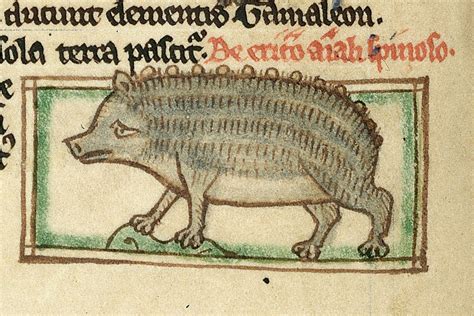 ducunt elementis Gamaleon.
sola terra pascit᷑. De erito aīali spinoso.